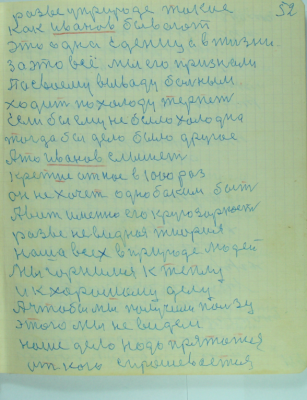 52
разве у природе такие
как иванов бывают
это одна единица в жизни
за это всё мы его признали
па своему вываду больным
ходит по холоду терпет
если бы ему не было холодна
тагда бы дело было другое
А то иванов
он не хочет однобоким быть
А вит именно его кругозорност
разве не видная теория
наша всех в природе людей
Мы горнимся к теплу
и к харошаму делу
А чтобы мы получилиползу
этого мы не видем
наше дело надо прятатся
от кого спрашевается